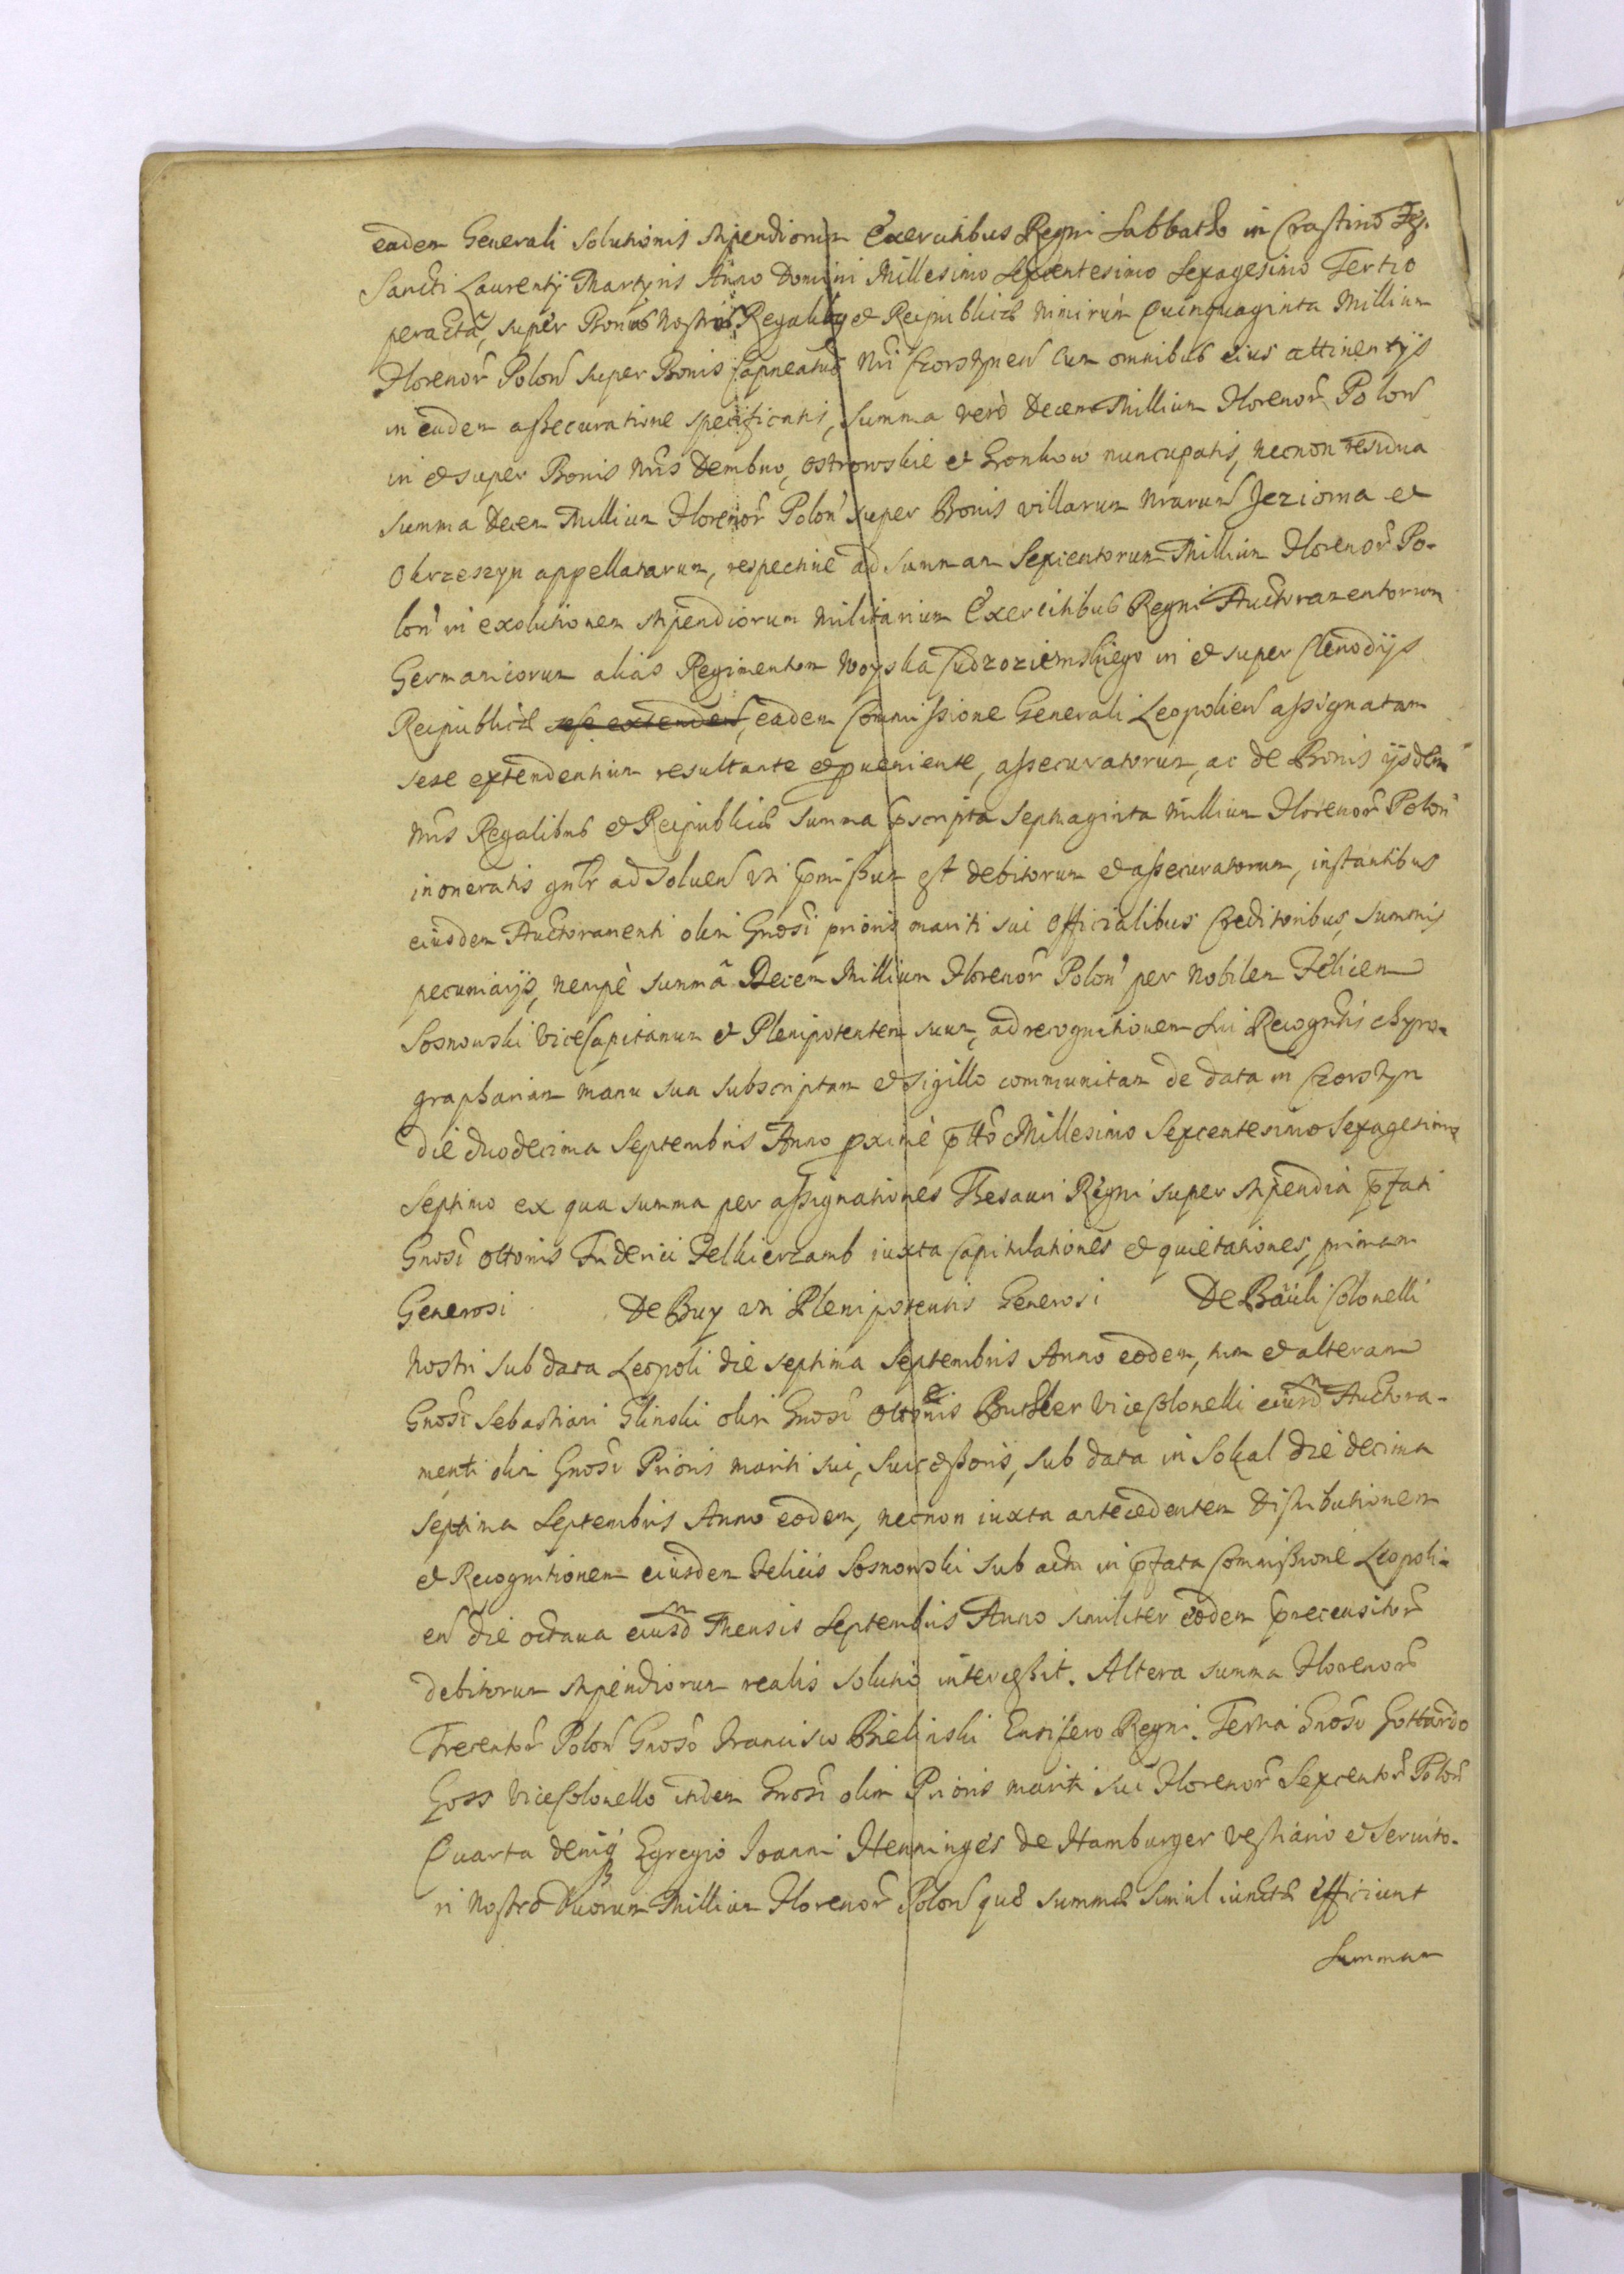 eadem Generali solutionis stipendiorum Exercitibus Regni Sabbatho in Crastino Fes.
Sancti Laurentij Martyris Anno Domini Millesimo Sexcentesimo Sexagesimo Tertio
peractâ, super Bonis Nostris Regalibus et Reipublicæ nimirùm Quinquaginta Millium
Florenor̃ Polon̄ super Bonis Capneatus Nri Czorstynen̄ cum omnibus eius attinentijs
in eadem assecuratione specificatis, summa verò Decem Millium Florenor̃ Polon̄
in et super Bonis Nris Dembno, Ostrowskie et Gronkow nuncupatis, necnon residua
summa Decem Millium Florenor̃ Polon̄ super Bonis villarum Nrarum Jeziorna et
Okrzeszyn appellatarum, respectiuè ad summam Sexcentorum Millium Florenor̃ Po-
lon̄ in exolutionem stipendiorum militarium Exercitibus Regni Auctoramentorum
Germanicorum alias Regimentom Woyska Cudzoziemskiego in et super Clenodijs
Reipublicæ sese extenden̄, eadem Commissione Generali Leopolien̄ assignatam
sese extendentium resultante et ꝓueniente, assecuratorum, ac de Bonis ijsdem
Nris Regalibus et Reipublicæ summa p̄scripta septuaginta Millium Florenor̃ Polon̄
inoneratis gnlr ad soluen̄ uti p̄missum est debitorum et assecuratorum, instantibus
eiusdem Auctoramenti olim Gnosi prioris mariti sui Officialibus Creditoribus, summis
pecuniarijs, nempè summâ Decem Millium Florenor̃ Polon̄ per Nobilem Felicem
Sosnowski ViceCapitaneum et Plenipotentem suum, ad recognitionem sui Recogntis chyro-
graphariam manu sua subscriptam et sigillo communitam de data in Czorsztyn
die duodecima Septembris Anno ꝓximè p̄tto Millesimo Sexcentesimo Sexagesimo
Septimo ex qua summa per assignationes Thesauri Regni super stipendia p̄fati
Gnosi Ottonis Friderici Felkierzamb iuxta Capitulationes et quietationes, primam
Generosi De Buy uti Plenipotentis Generosi De Bäuli Colonelli
Nostri sub data Leopoli die septima Septembris Anno eodem, tum et alteram
Gnosi Sebastiani Glinski olim Gnosi Ottonis Buttler ViceColonelli eiusdm Auctora-
menti olim Gnosi Prioris mariti sui, Successoris, sub data in Sokal die decima
septima Septembris Anno eodem, necnon iuxta antecedentem Distributionem
et Recognitionem eiusdem Felicis Sosnowski sub actu in p̄fata Commissione Leopoli-
en̄ die octaua eiusdm Mensis Septembris Anno similiter eodem p̄recensitor̃
debitorum stipendiorum realis solutio intercessit. Altera summa Florenor̃
Trecentor̃ Polon̄ Gnoso Francisco Bielinski Ensifero Regni. Tertia Gnoso Gottardo
Goss ViceColonello itidem Gnosi olim Prioris mariti sui Florenor̃ Sexcentor̃ Polon̄
Quarta deniq́ Egregio Joanni Henninges de Hamburger Vestiario et Seruito-
ri Nostro Duorum Millium Florenor̃ Polon̄ quæ summæ simul iunctæ efficiunt
Summam